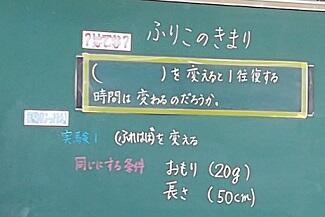 ふりこのきまり
(　　　　)を変えると1往復する
時間は変わるのだろうか。
実験1　ふれはばを変える
同じにする条件　おもり(20g)
長さ(50cm)